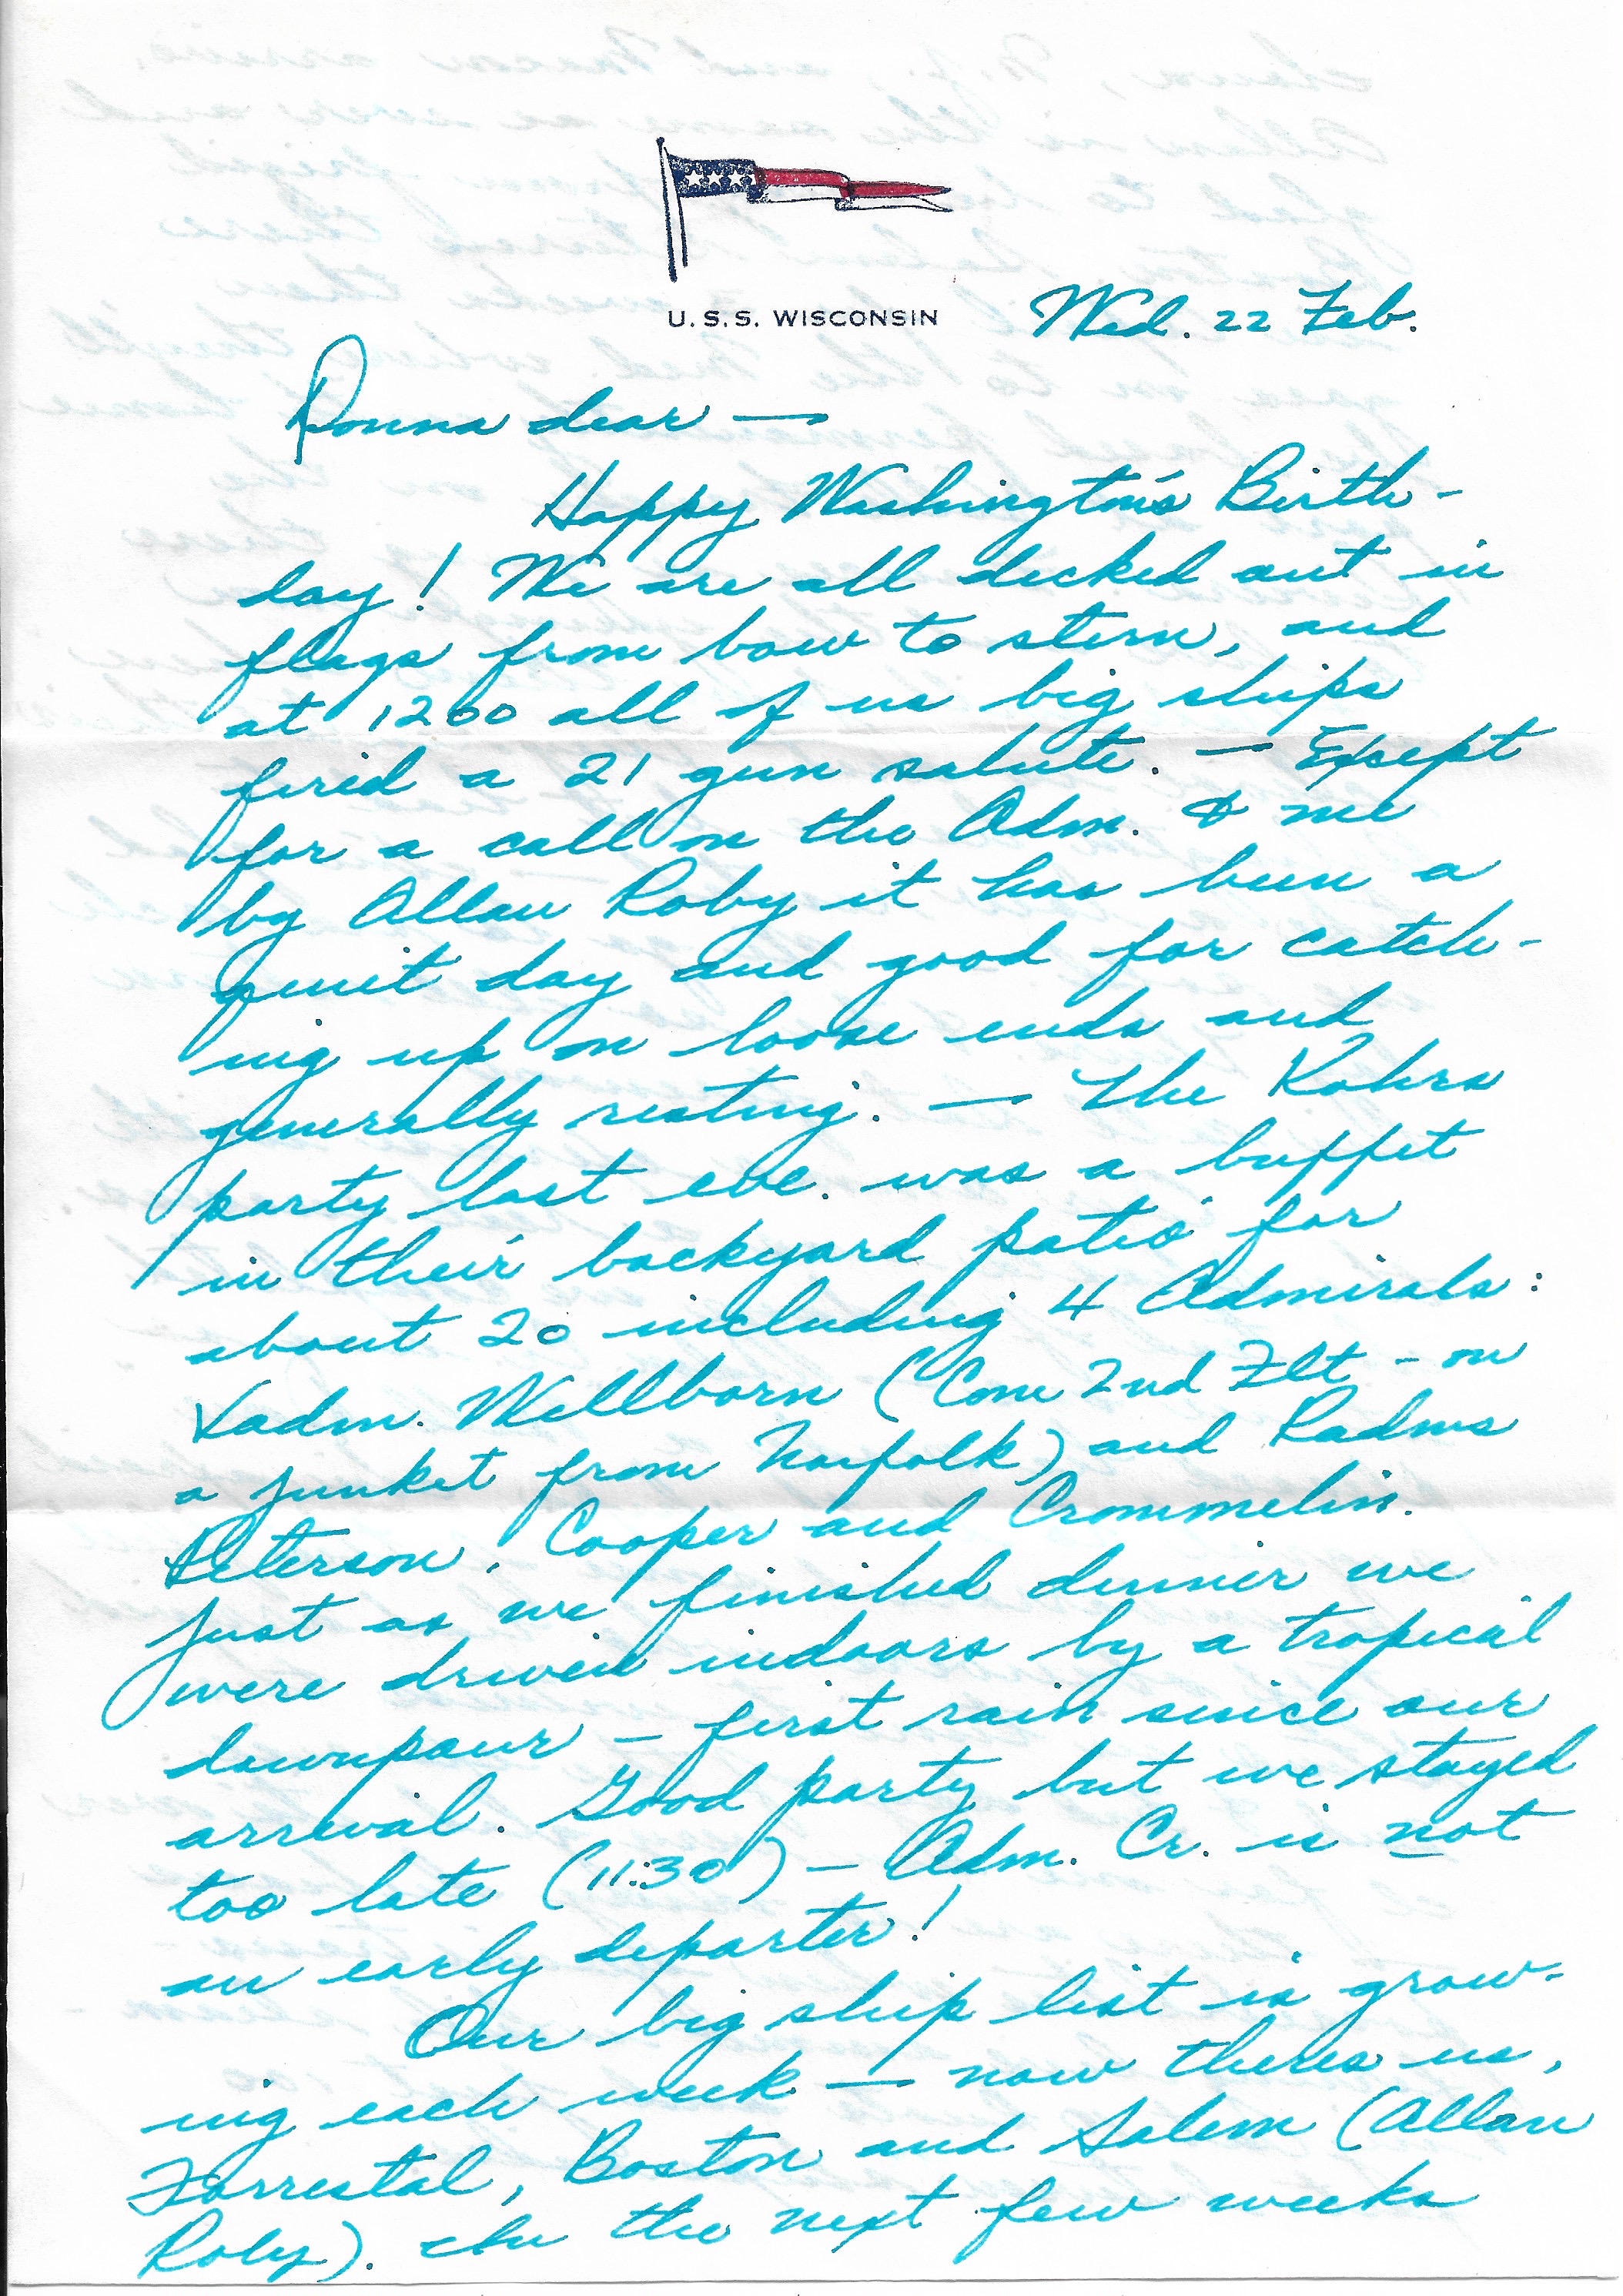 U. S. S. WISCONSIN
Wed. 22 Feb.
Donna dear —
Happy Washington's Birth-
day! We are all decked out in
flags from bow to stern, and
at 1200 all of us big ships
fired a 21 gun salute. — Except
for a call on the Adm. & me
by Allan Roby it has been a
quiet day and good for catch-
ing up on loose ends and
generally resting. — The Kohrs
party last eve. was a buffet
in their backyard patio for
about 20 including 4 Admirals:
Vadm. Wellborn (Com 2nd Flt - on
a junket from Norfolk) and Radms
Peterson, Cooper and Crommelin.
Just as we finished dinner we
were driven indoors by a tropical
downpour - first rain since our
arrival. Good party but we stayed
too late (11:30) - Adm. Cr. is not
an early departer!
Our big ship list is grow-
ing each week — now theres us,
Forrestal, Boston and Salem (Allan
Roby). In the next few weeks